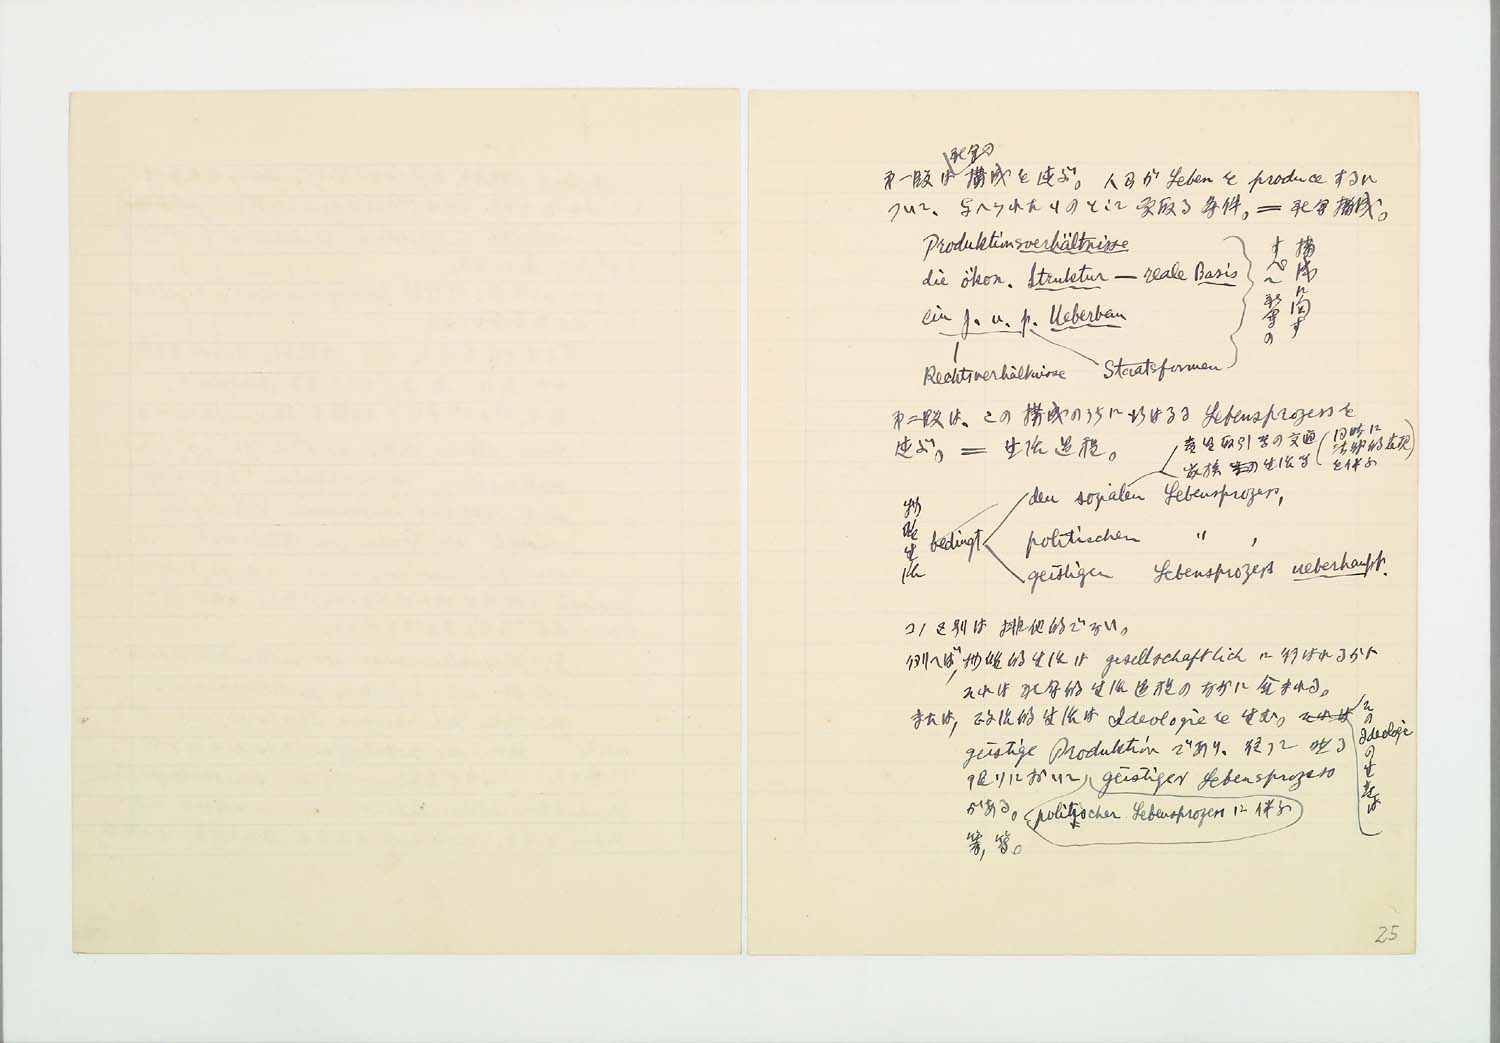 社会の
第一段は構成を述ぶ。人間が Leben を produce するに
ついて、与へられたものとして受取る条件。＝社会構成。
Produktionsverhältnisse
die ökon. Struktur — reale Basis
ein j. u. p. Ueberbau
Rechtsverhältnisse Staatsformen
構成に関す
すべて社会の
第二段は、この構成のうちに行はるる Lebensprozess を
述ぶ。＝ 生活過程。
生産取引等の交通(同時に
法律的表現
を伴ふ)
家族の生活等
物質生活
bedingt
den sozialen Lebensprozess,
politischen 〃 ,
geistigen Lebensprozess ueberhaupt.
コノ区別は排他的でない。
例へば, 物質的生活は gesellschaftlich に行はれるから
それは社会的生活過程のなかに含まれる。
または, 政治的生活は Ideologie を生む。それは
そのIdeologieの生産は
geistige Produktion であり、従つて
限りにおいて, geistiger Lebensprozess
がある。politischer Lebensprozess に伴ふ
等, 等。
25